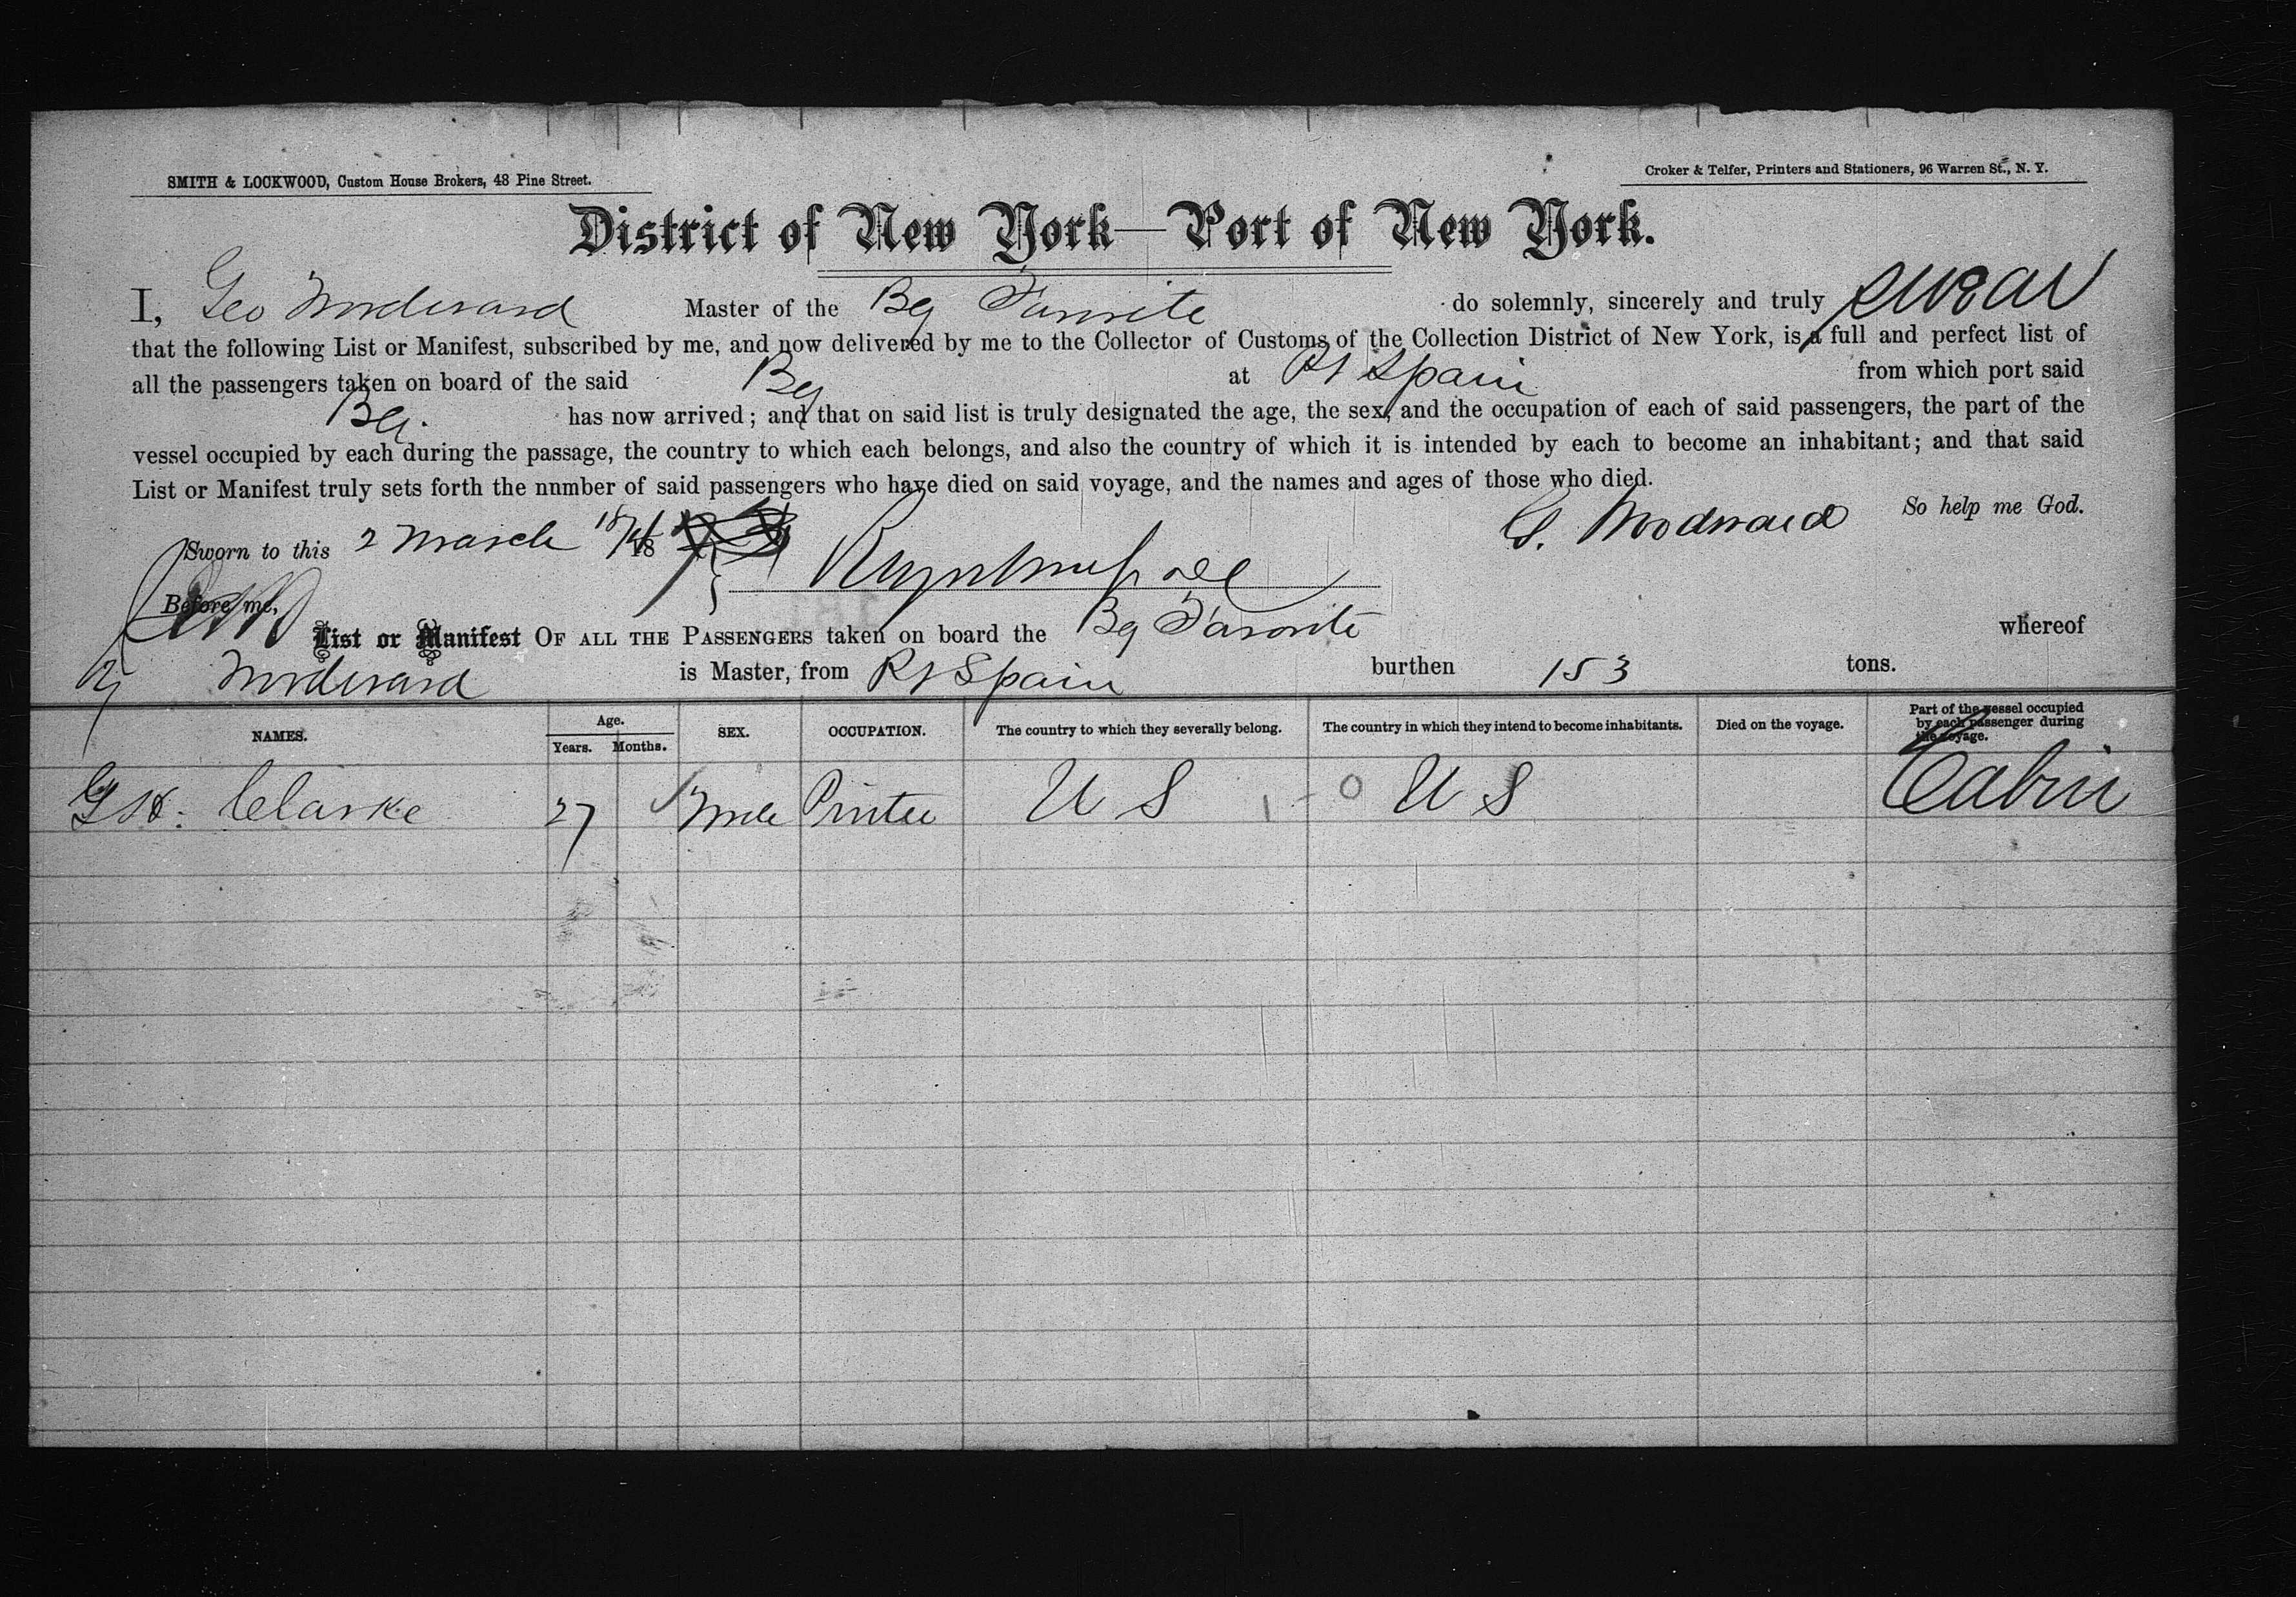 SMITH & LOCKWOOD, Custom House Brokers, 48 Pine Street.
Croker & Telfer, Printers and Stationers, 96 Warren St., N. Y.
District of New York—Port of New York.
I, Geo Woodward Master of the Bg Favorite do solemnly, sincerely and truly swear
that the following List or Manifest, subscribed by me, and now delivered by me to the Collector of Customs of the Collection District of New York, is a full and perfect list of
all the passengers taken on board of the said Bg at Pt Spain from which port said
Bg. has now arrived; and that on said list is truly designated the age, the sex, and the occupation of each of said passengers, the part of the
vessel occupied by each during the passage, the country to which each belongs, and also the country of which it is intended by each to become an inhabitant; and that said
List or Manifest truly sets forth the nnmber of said passengers who have died on said voyage, and the names and ages of those who died.
So help me God.
Sworn to this 2 March 18
G. Woodward
Before me,
List or Manifest OF ALL THE PASSENGERS taken on board the Bg Favorite whereof
Woodward is Master, from Pt Spain burthen 153 tons.
NAMES. Age. Years. Months. SEX. OCCUPATION. The country to which they severally belong. The country in which they intend to become inhabitants. Died on the voyage. Part of the vessel occupied by each passenger during the voyage.
Clarke 27 Male Printer U S 1 - 0 U S Cabin